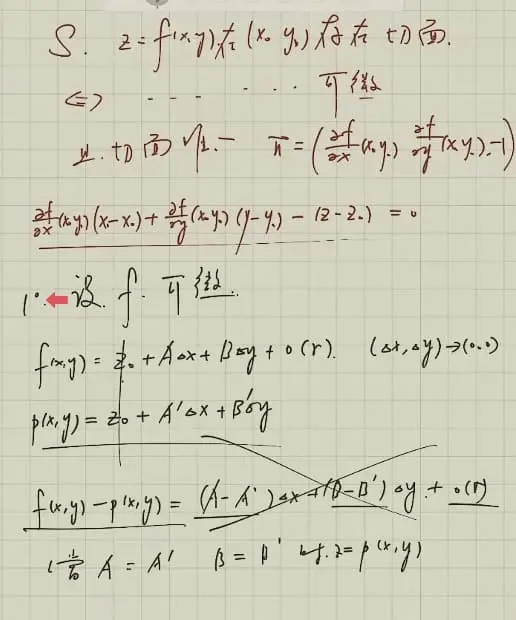 S. z=f(x,y)在(x₀ y₀)存在切面.
⟺ - - - . . . 可微
且.切面唯一 n̄=(∂f/∂x(x₀y₀) ∂f/∂y(x₀y₀),-1)
∂f/∂x(x₀y₀)(x-x₀)+∂f/∂y(x₀y₀)(y-y₀)-(z-z₀)=0
1°. 设. f. 可微.
f(x,y)=z₀+AΔx+BΔy+o(r). (Δx,Δy)→(0.0)
p(x,y)=z₀+A'Δx+B'Δy
f(x,y)-p(x,y)=(A-A')Δx+(B-B')Δy+o(r)
A=A' B=B' z=p(x,y)